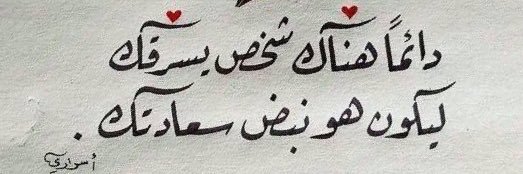 دائماً هناك شخص يسرقك
ليكون هو نبض سعادتك .
أسراري